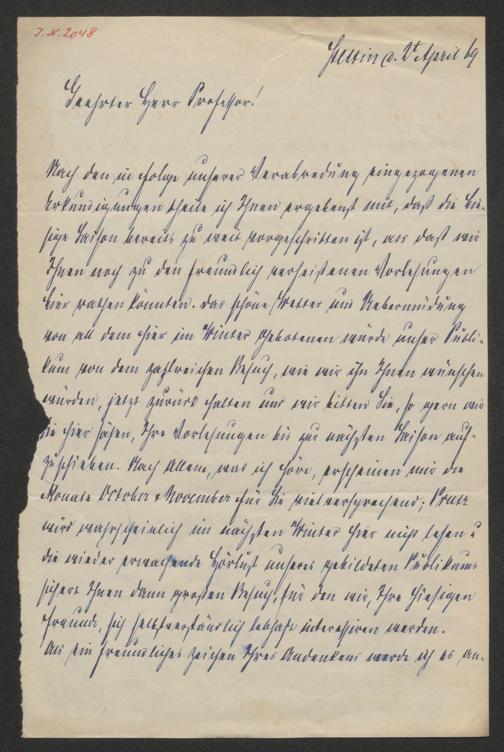 J.N. 2048
Stettin d. 2t April 69.
Geehrter Herr Professor!
Nach den in Folge unserer Verabredung eingezogenen
Erkundigungen theile ich Ihnen ergebenst mit, daß die hie-
sige Saison bereits zu weit vorgeschritten ist, als daß wir
Ihnen noch zu den freundlich verheißenen Vorlesungen
hier rathen könnten. Das schöne Wetter und Uebermüdung
von all dem hier im Winter Gebotenen würde unser Publi-
kum von dem zahlreichen Besuch, wie wir ihn Ihnen wünschen
würden, jetzt zurück halten und wir bitten Sie, so gern wir
Sie hier sähen, Ihre Vorlesungen bis zur nächsten Saison auf-
zuschieben. Nach Allem, was ich höre, erscheinen mir die
Monate October & November für Sie vielversprechend; Prutz
wird wahrscheinlich im nächsten Winter hier nicht lesen u
die wieder erwachende Hörlust unseres gebildeten Publikums
sichert Ihnen dann großen Besuch, für den wir, Ihre hiesigen
Freunde, sich selbstverständlich lebhaft interessiren werden.
Als ein freundliches Zeichen Ihres Andenkens werde ich es an-